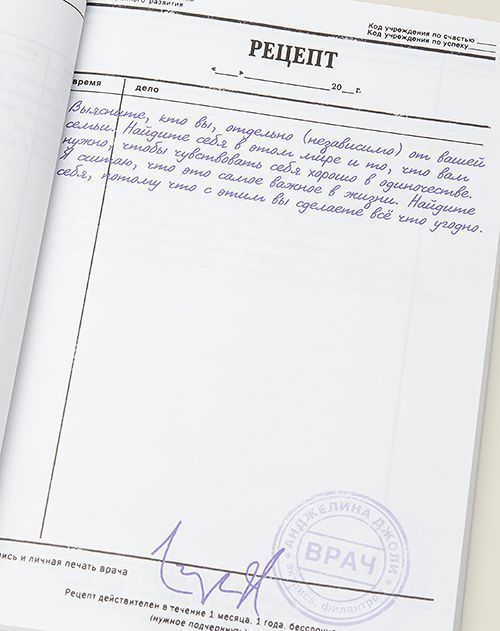 развития
Код учреждения по счастью
Код учреждения по успеху
РЕЦЕПТ
«    »    20    г.
время дело
Выясните, кто вы, отдельно (независимо) от вашей
семьи. Найдите себя в этом мире и то, что вам
нужно, чтобы чувствовать себя хорошо в одиночестве.
Я считаю, что это самое важное в жизни. Найдите
себя, потому что с этим вы сделаете всё что угодно.
АНДЖЕЛИНА ДЖОЛИ
ВРАЧ
актриса, филантроп
и личная печать врача
Рецепт действителен в течение 1 месяца, 1 года, бессрочно
(нужное подчеркнуть)